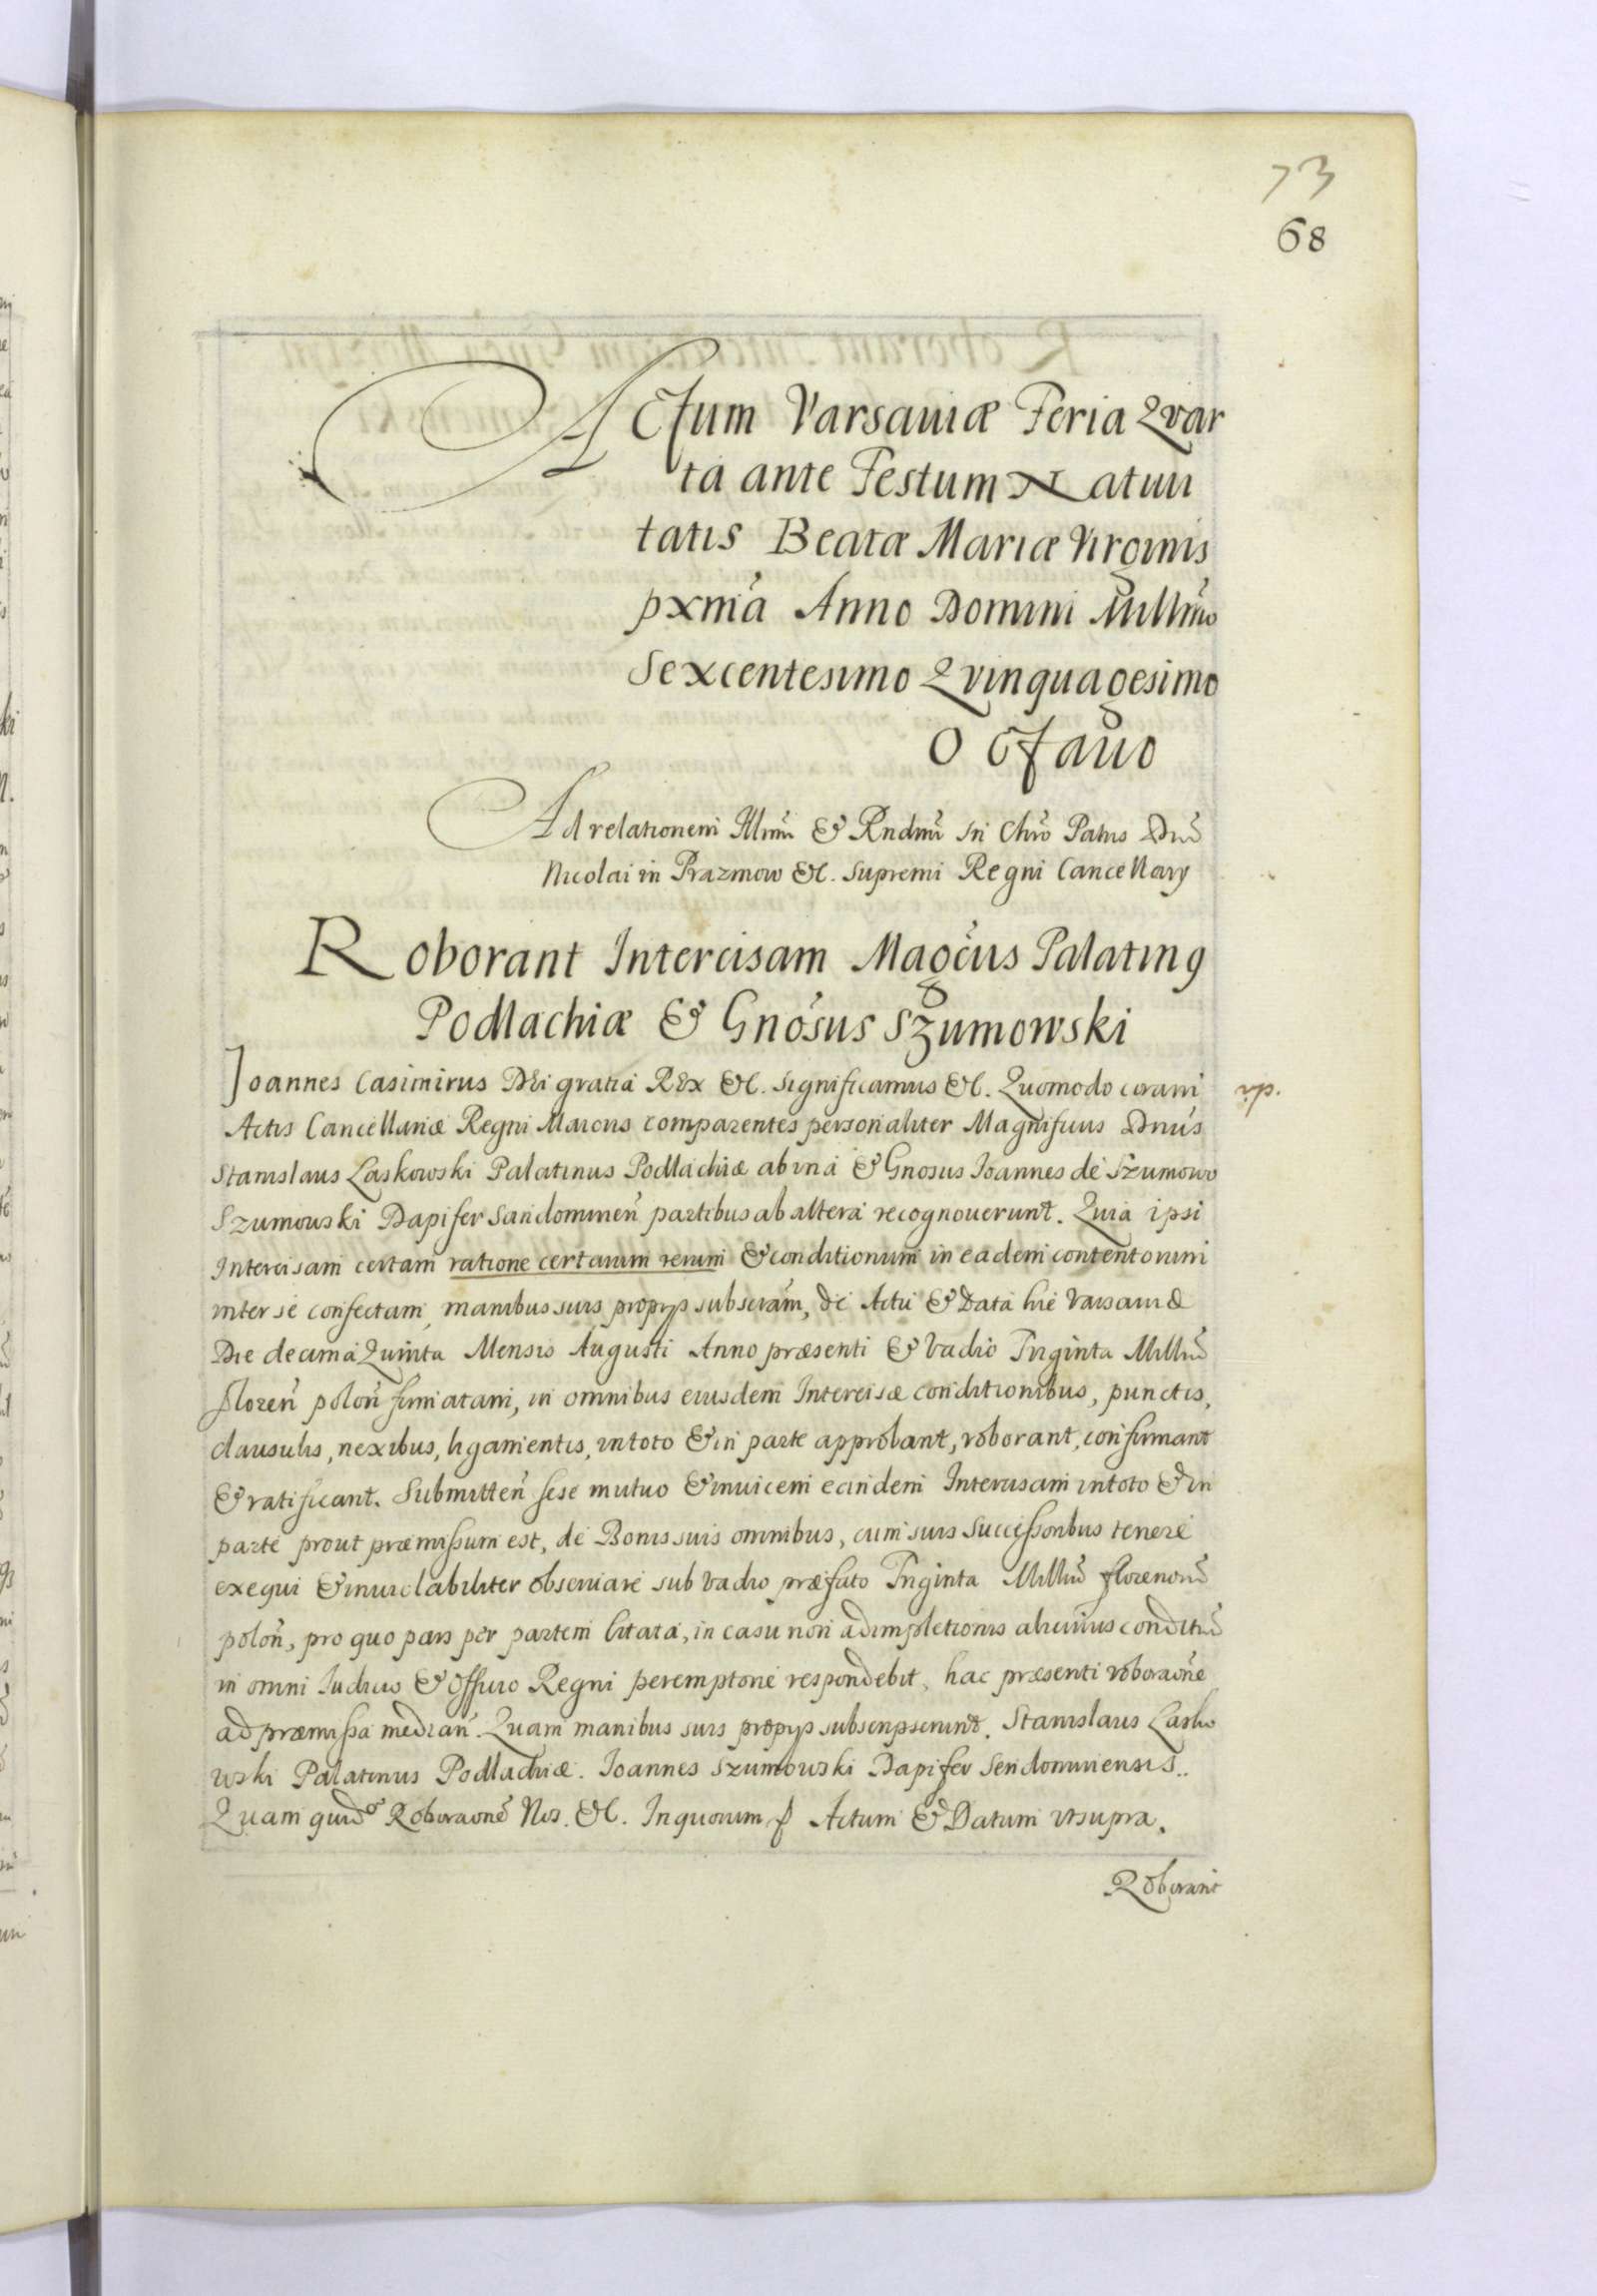 73
68
Actum Varsaviæ Feria Qvar
ta ante Festum Nativi
tatis Beatæ Mariæ Virginis
pxmã Anno Domini Millmõ
Sexcentesimo Qvinquagesimo
Octavo
Ad relationem Illmi & Rndmi in Chro Patris Dni
Nicolai in Prazmow &c. Supremi Regni Cancellarÿ
Roborant Intercisam Magcus Palatin9
Podlachiæ & Gnosus Szumowski
Joannes Casimirus DEi gratia REx &c. Significamus &c. Quomodo coram
Actis Cancellariæ Regni Maioris comparentes personaliter Magnificus Dnus
Stanislaus Laskowski Palatinus Podlachiæ ab una & Gnosus Joannes de Szumowo
Szumowski Dapifer Sandomirien partibus ab altera recognoverunt. Quia ipsi
Intercisam certam ratione certarum rerum & conditionum in eadem contentorum
inter se confectam, manibus suis proprÿs subscram, de Actu & Data hic Varsaviæ
Die decima Quinta Mensis Augusti Anno præsenti & Vadio Triginta Milliũ
floren polon firmatam, in omnibus eiusdem Intercisæ conditionibus, punctis,
clausulis, nexibus, ligamentis, in toto & in parte approbant, roborant, confirmant
& ratificant. Submitten sese mutuo & invicem eandem Intercisam in toto & in
parte prout præmissum est, de Bonis suis omnibus, cum suis Successoribus tenere
exequi & inviolabiliter observare sub vadio præfato Triginta Milliũ florenorũ
polon, pro quo pars per partem citata, in casu non adimpletionis alicuius conditiũ
in omni Iudicio & Officio Regni peremptorie respondebit, hac præsenti roboraone
ad præmissa median. Quam manibus suis proprÿs subscripserunt. Stanislaus Lasko
wski Palatinus Podlachiæ. Joannes Szumowski Dapifer Sendomiriensis..
Quam quid Roboraone Nos. &c. In quorum f Actum & Datum vt supra.
Roborant